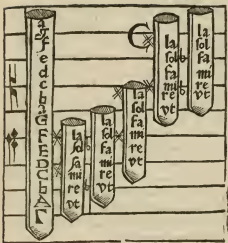 g
f
e
d
c
b
a
G
F
E
D
C
b
A
Γ
la
ſol
fa
mi
re
vt
la
ſol
fa
mi
re
vt
la
ſol
fa
mi
re
vt
la
ſol
fa
mi
re
vt
la
ſol
fa
mi
re
vt